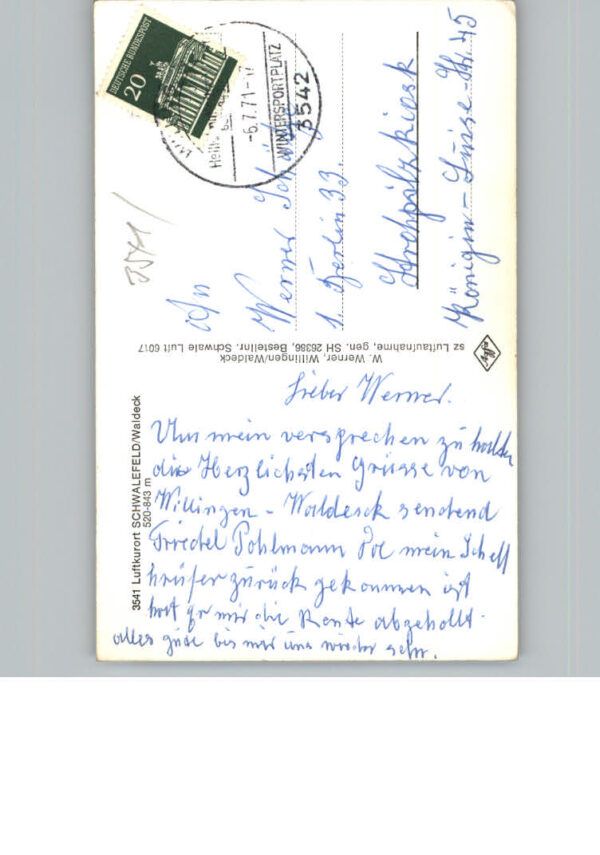 DEUTSCHE BUNDESPOST
20
-6.7.71-
WINTERSPORTPLATZ
3542
3541
An
Werner
1 Berlin 33.
Königin-Luise-Str. 45
W. Werner, Willingen/Waldeck
sz Luftaufnahme, gen. SH 26386, Bestellnr. Schwale Luft 6017
Agfa
3541 Luftkurort SCHWALEFELD/Waldeck
520-843 m
Lieber Werner.
Um mein versprechen zu halten
die Herzlichsten Grüsse von
Willingen - Waldeck sendend
Friedel Pohlmann mein
zurück gekommen ist
hat er mir die Rente abgehollt.
alles gute bis wir uns wieder sehn.